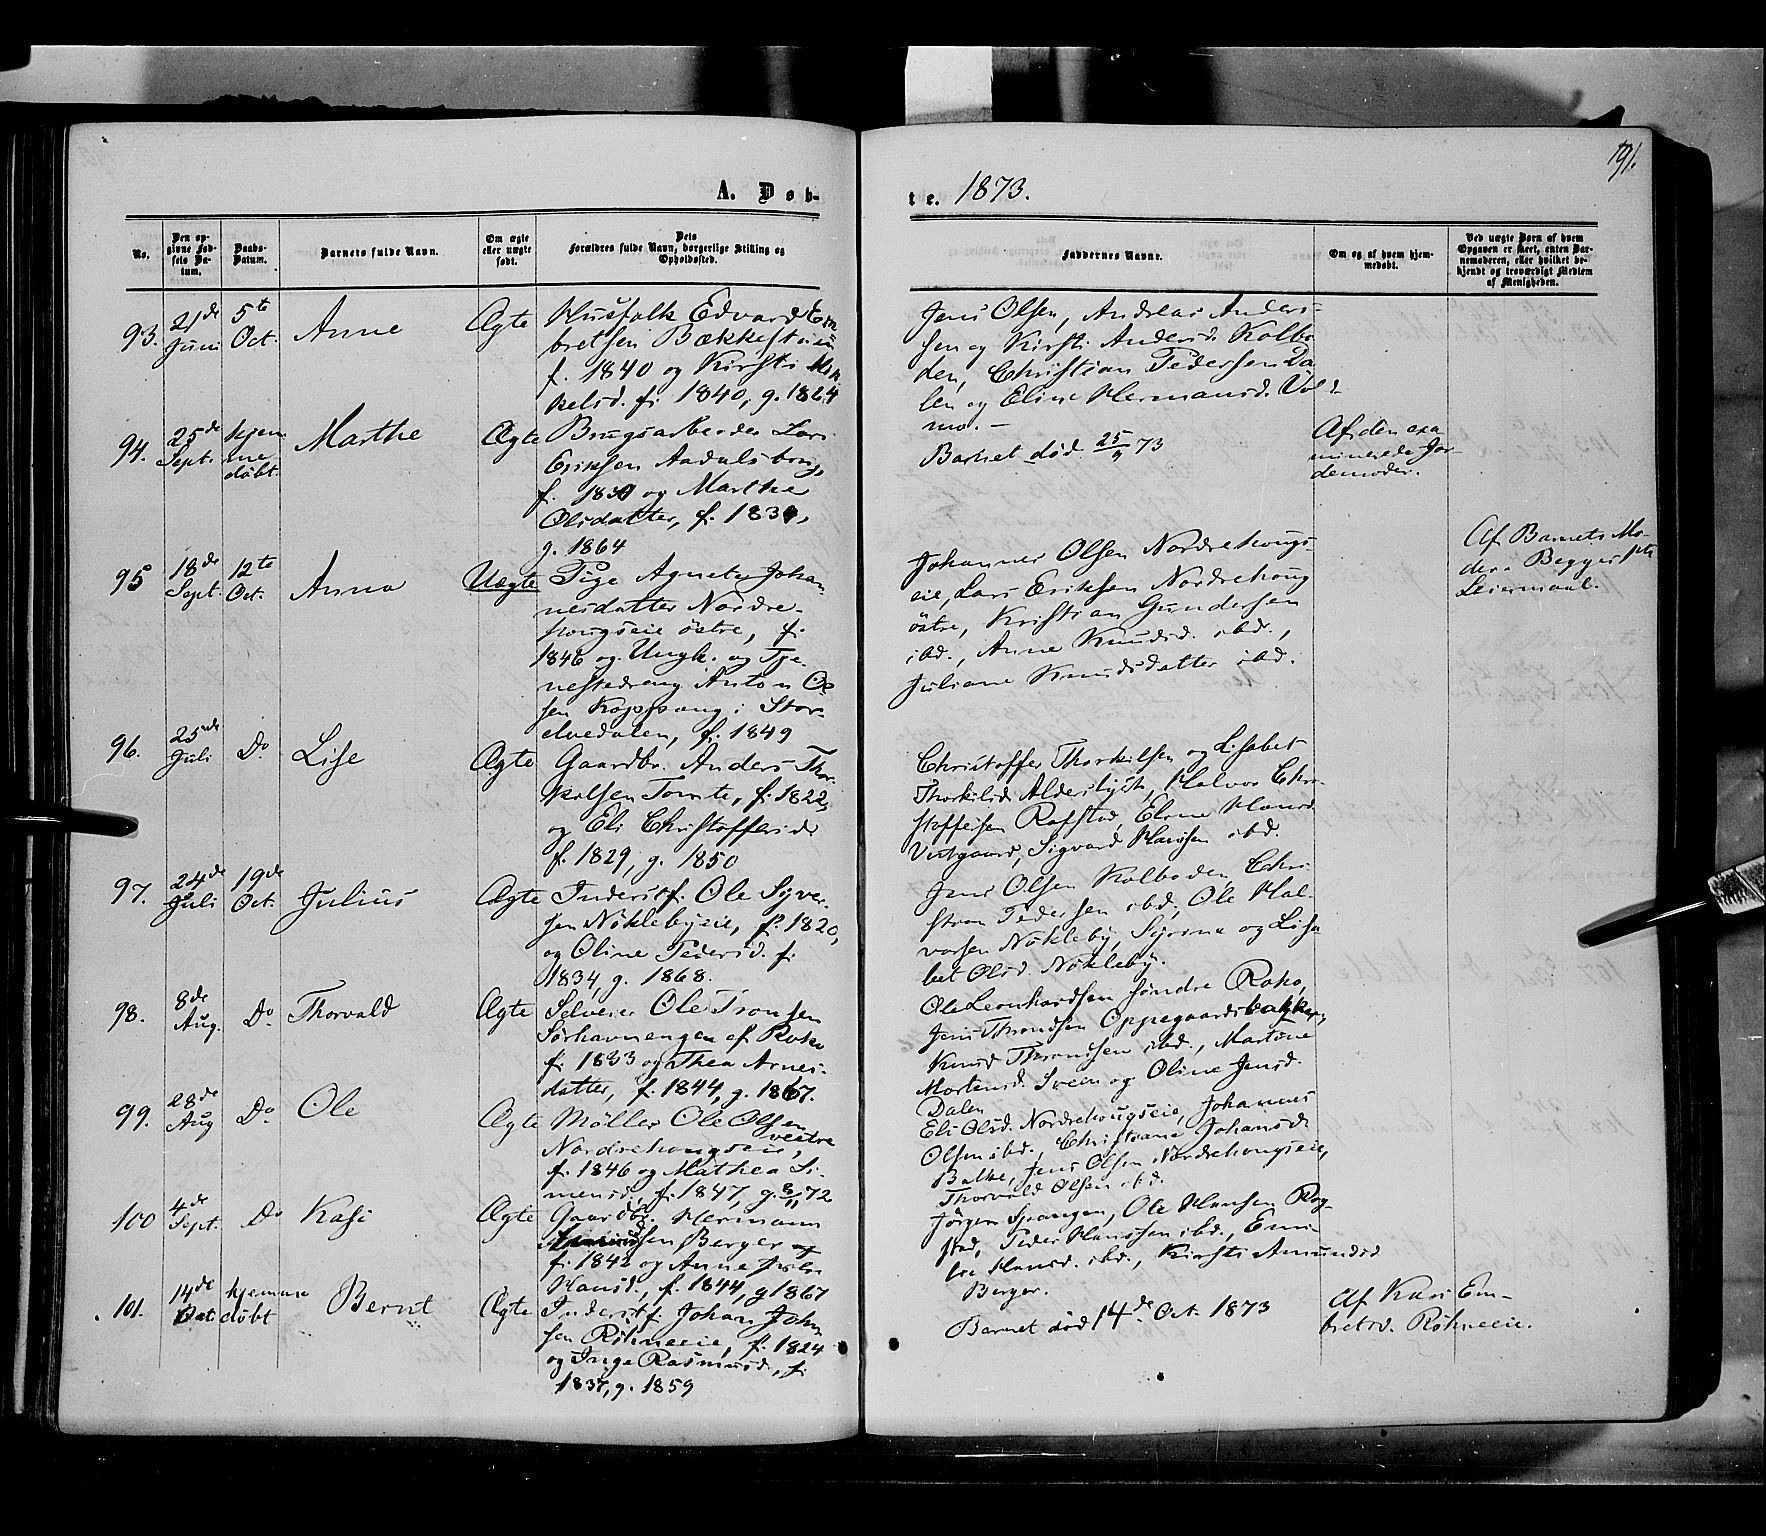 191.
A. Døb-
te. 1873.
No.
Den op-
givne Fød-
sels Da-
tum.
Daabs-
Datum.
Barnets fulde Navn.
Om ægte
eller uægte
født.
Dets
Forældres fulde Navn, borgerlige Stilling og
Opholdssted.
Faddernes Navne.
Om og af hvem hjem-
medøbt.
Ved uægte Børn af hvem
Opgaven er skeet, enten Bar-
nemoderen, eller hvilket be-
kjendt og troværdigt Medlem
af Menigheden.
93.
21de
Juni
5te
Oct.
Anne
Ægte
Husfolk Edvard Em
bretsen Bækkestuen
f. 1840 og Kirsti Mik
kelsd. f. 1840, g. 1864
Jens Olsen, Andreas Anders-
sen og Kirsti Andersd. Kolbo-
den, Christian Pedersen Da
len og Eline Hermansd. Vold-
mo. -
94.
25de
Sept.
hjem
me
døbt
Marthe
Ægte
Brugsarbeider Lars
Eriksen Aadalsbrug,
f. 1830 og Marthe
Olsdatter, f. 1839,
g. 1864
Barnet død 25/9 73
Af den exa
minerede Jor-
demoder.
95
18de
Sept.
12te
Oct.
Anna
Uægte
Pige Agnete Johan
nesdatter Nordre-
hougseie østre, f.
1846 og Ungk. og Tje-
nestedreng Anton Ol
sen Koppang i Stor-
elvedalen, f. 1849
Johannes Olsen Nordrehougs-
eie, Lars Eriksen Nordrehoug
østre, Kristian Gundersen
ibd., Anne Knudsd. ibd.,
Juliane Knudsdatter ibd.
Af Barnets Mo-
der. Begges 1ste
Leiermaal.
96.
25de
Juli
Do
Lise
Ægte
Gaardbr. Anders Thor-
kelsen Tomte, f. 1822,
og Eli Christoffersd.
f. 1829, g. 1850
Christoffer Thorkilsen og Lisabet
Thorkilsd. Alderslyst, Halvor Chri-
stoffersen Rofstad, Elene Hansd.
Vestgaard, Sigvard Hanssen ibd.
97.
24de
Juli
19de
Oct.
Julius
Ægte
Inderstf. Ole Syver-
sen Nøklebyeie, f. 1820,
og Oline Pedersd. f.
1834, g. 1868.
Jens Olsen Kolboden Chri-
stian Pedersen ibd., Ole Hal-
vorsen Nøkleby, Syrine og Lisa-
bet Olsd. Nøkleby.
98.
8de
Aug.
Do
Thorvald
Ægte
Selveier Ole Tronsen
Sørhavnengen af Roko
f. 1833 og Thea Arnes-
datter, f. 1844, g. 1867.
Ole Leonhardsen søndre Roko,
Jens Throndsen Oppegaardsbakken,
Knud Throndsen ibd., Martine
Mortensd. Sveen og Oline Jensd.
Dalen
99.
28de
Aug
Do
Ole
Ægte
Møller Ole Olsen
Nordrehougseie, vestre
f. 1846 og Mathea Si-
mensd., f. 1847, g. 8/11 72
Eli Olsd. Nordrehougseie, Johannes
Olsen ibd., Christiane Johansd.
Balke, Jens Olsen Nordrehougseie,
Thorvald Olsen ibd.
100
4de
Sept.
Do
Kasi
Ægte
Gaardbr. Hermann
Berger og
f. 1842 og Anne
Hansd., f. 1844, g 1867
Jørgen Spangen, Ole Hansen Rog-
stad, Peder Hanssen ibd., Emi-
lie Hansd. ibd., Kirsti Amundsd
Berger.
101.
14de
Oct
hjemme
døbt
Bernt
Ægte
Inderstf. Johan John
sen Røhneeie, f. 1824
og Inge Rasmusd., f.
1837, g. 1859
Barnet død 14de Oct. 1873
Af Kari Em-
bretsd. Røhneeie.